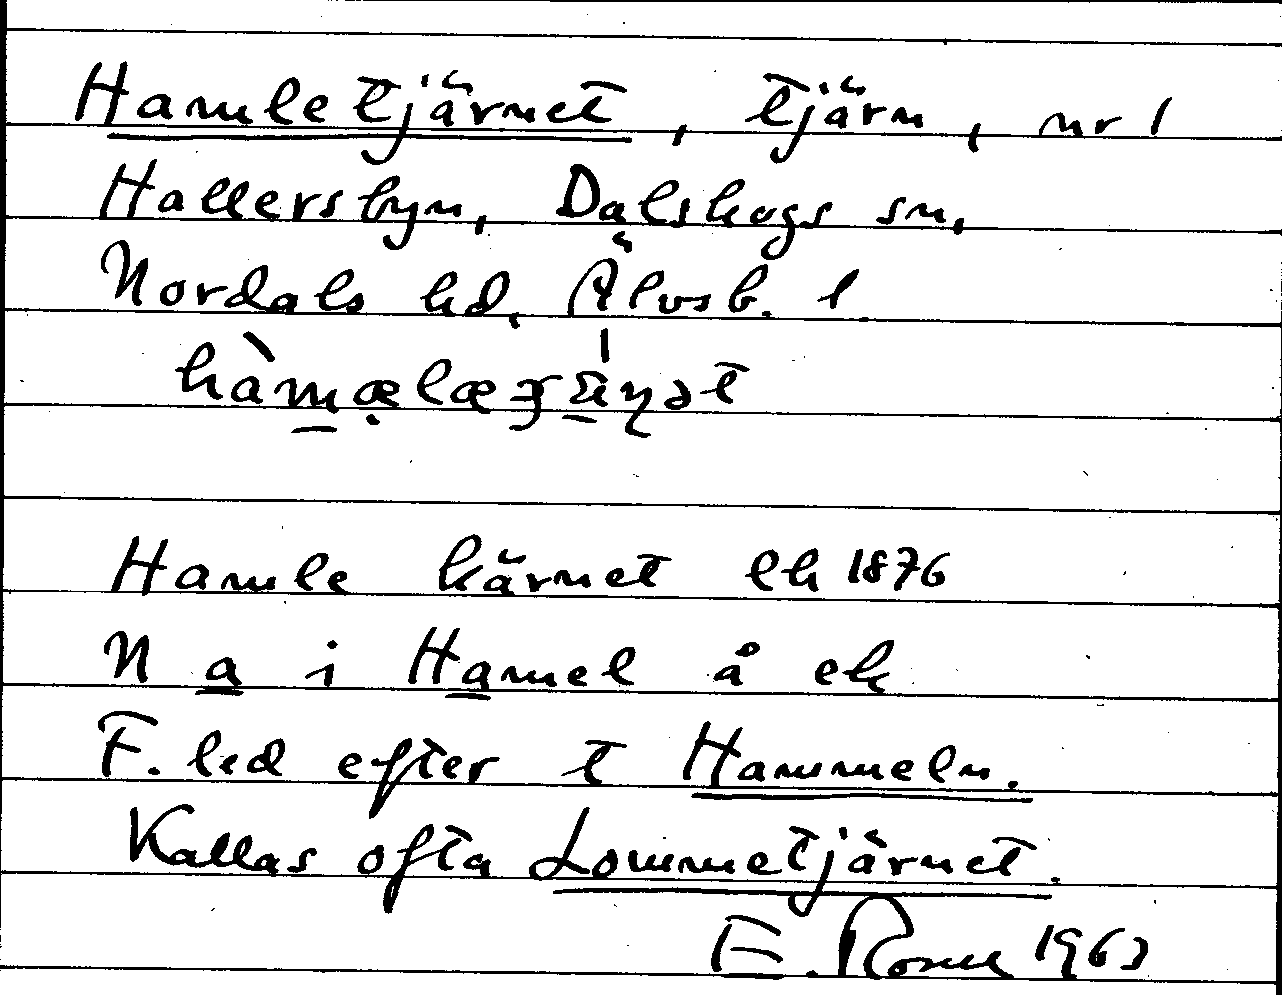 Hamletjärnet, tjärn, nr 1
Hallersbyn, Dalskogs sn,
Nordals hd, Älvsb. l.
Hamle kärnet ek 1876
N a i Hamel å ek
F. led efter t Hammeln.
Kallas ofta Lommetjärnet.
E. 1963